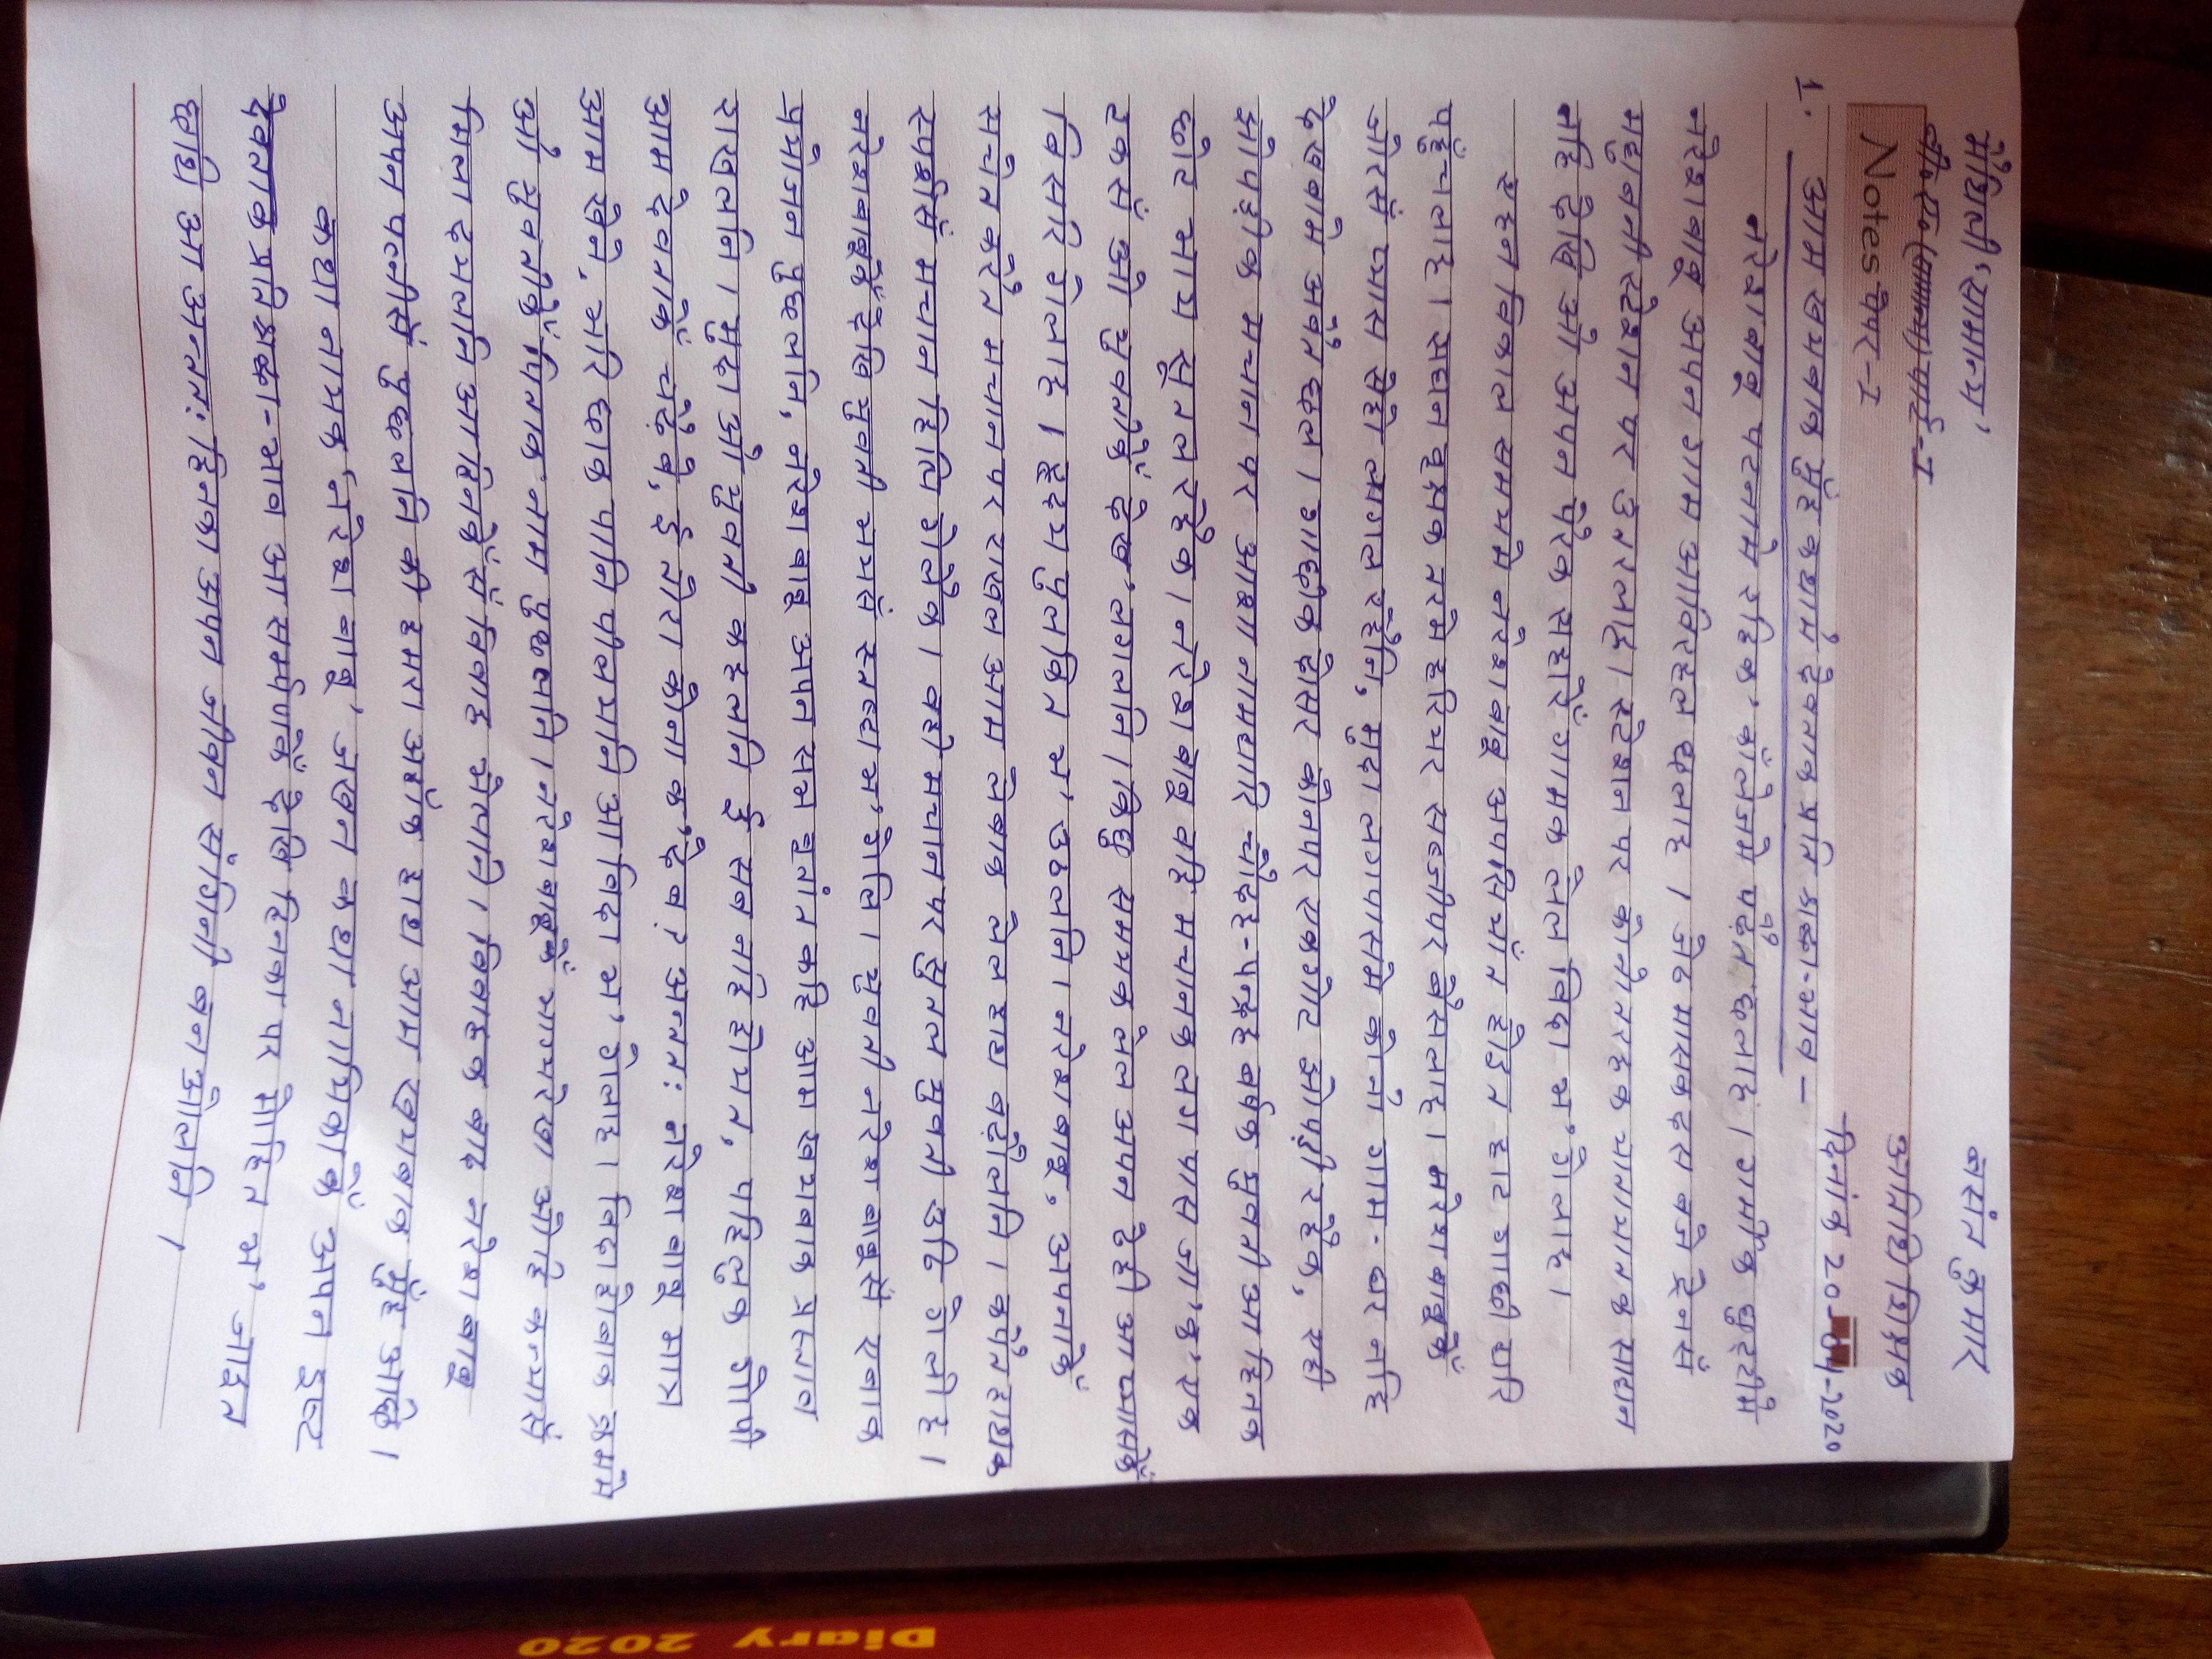 मैथिली 'सामान्य' बसंत कुमार
बी०ए० पार्ट-I अतिथि शिक्षक
Notes पेपर-1
दिनांक 20-04-2020
1. आम खयबाक मुँह कथामे देवताक प्रति श्रद्धा-भाव —
नरेशबाबू पटनामे रहिक' कॉलेजमे पढ़ैत छलाह। गामीक छुट्टीमे
नरेशबाबू अपन गाम आबिरहल छलाह। जेठ मासक दस बजे ट्रेनसँ
मधुबनी स्टेशन पर उतरलाह। स्टेशन पर कोनो तरहक यातायातक साधन
नहि देखि ओ अपन पैरक सहारे गामक लेल विदा भ' गेलाह।
एहने विकाल समयमे नरेशबाबू अपस्याँत होइत हाट गाछी धरि
पहुँचलाह। सघन वृक्षक तरमे हरियर सब्जीपर बैसलाह। नरेशबाबूकेँ
जोरसँ प्यास सेहो लागल रहैनि, मुदा लगपासमे कोनो गाम-घर नहि
देखबामे अबैत छल। गाछीक दोसर कोनपर एकगोट झोपड़ी रहैक, एही
झोपड़ीक मचान पर आशा नामधारि चौदह-पन्द्रह वर्षक युवती आ हिनक
छोट भाय सूतल रहैक। नरेशबाबू वहि मचानक लग पास जा'क' एक
टकसँ ओ युवतीकेँ देख' लगलनि। किछु समयक लेल अपन देही आ प्यासकेँ
बिसरि गेलाह। हृदय पुलकित भ' उठलनि। नरेशबाबू, अपनाकेँ
सचेत करैत मचानपर राखल आम लेबाक लेल हाथ बढ़ौलनि। कँपैत हाथक
स्पर्शसँ मचान हिलि गेलैक। वही मचानपर सुतल युवती उठि गेलीह।
नरेशबाबूकेँ देखि युवती भयसँ स्तब्ध भ' गेलि। युवती नरेशबाबूसँ एबाक
प्रयोजन पुछलनि, नरेश बाबू अपन सभ वृतांत कहि आम खयबाक प्रस्ताव
राखलनि। मुदा ओ युवती कहलनि ई सब नहि होयत, पहिलुक गोपी
आम देवताकेँ चढ़ै बे, ई तोरा कोना क' देब? अन्ततः नरेश बाबू मात्र
आम खेने, भरि छाक पानि पीलयनि आ विदा भ' गेलाह। विदा होबाक क्रममे
ओ युवतीकेँ पिताक नाम पुछलनि। नरेशबाबूकेँ भाग्यरेखा ओहि कन्यासँ
मिला देयलनि आ हिनकेँसँ विवाह भेलयनि। विवाहक बाद नरेशबाबू
अपन पत्नीसँ पुछलनि की हमरा अहाँक हाथ आम खयबाक मुँह अछि।
कथा नायक 'नरेश बाबू' जखन कथा नायिकाकेँ अपन इष्ट
देवताक प्रति श्रद्धा-भाव आ समर्पणकेँ देखि हिनका पर मोहित भ' जाइत
छथि आ अन्ततः हिनका अपन जीवन संगिनी बनाओलनि।
Diary 2020